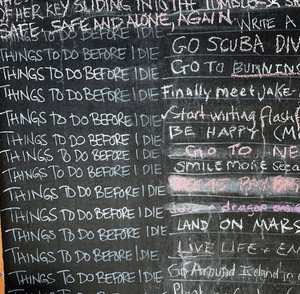 OF HER KEY SLIDING INTO THE TUMBLERS
SAFE. SAFE AND ALONE, AGAIN. WRITE A
THINGS TO DO BEFORE I DIE
THINGS TO DO BEFORE I DIE GO SCUBA DIV
THINGS TO DO BEFORE I DIE GO TO BURNING
THINGS TO DO BEFORE I DIE Finally meet Jake
THINGS TO DO BEFORE I DIE Start writing flash
THINGS TO DO BEFORE I DIE BE HAPPY (M
THINGS TO DO BEFORE I DIE GO TO NE
THINGS TO DO BEFORE I DIE SMILE MORE
THINGS TO DO BEFORE I DIE
THINGS TO DO BEFORE I DIE dragon
THINGS TO DO BEFORE I DIE LAND ON MARS
THINGS TO DO BEFORE I DIE LIVE LIFE
THINGS TO DO BEFORE I DIE Go Around Iceland in
THINGS TO DO BEFORE I DIE